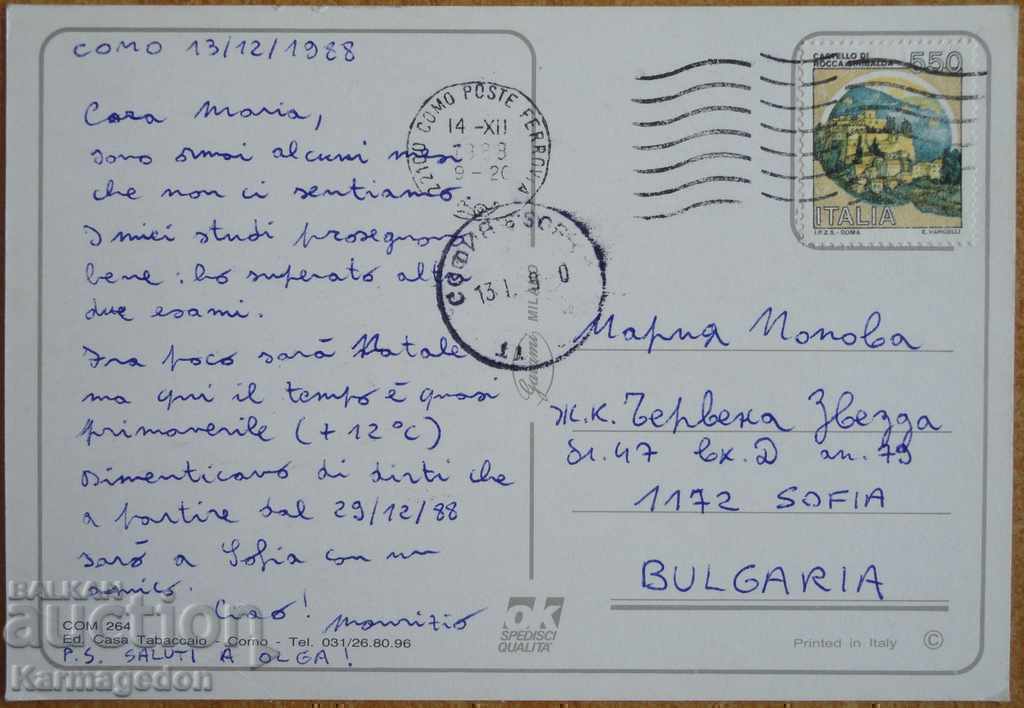 COMO 13/12/1988
Cara Maria,
sono ormai alcuni mesi
che non ci sentiamo
I miei studi proseguono
bene: ho superato altri
due esami.
Fra poco sarà Natale
ma qui il tempo è quasi
primaverile (+12°C)
Dimenticavo di dirti che
a partire dal 29/12/88
sarò a Sofia con un
amico.
Ciao! Maurizio
COM 264
Ed. Casa Tabaccaio - Como - Tel. 031/26.80.96
P.S. SALUTI A OLGA!
22100 COMO POSTE FERROVIA
14 -XII
1988
9-20
13. I.
Garami MILANO
ok
SPEDISCI
QUALITA'
CASTELLO DI
ROCCA SINIBALDA
550
ITALIA
I.P.Z.S. - ROMA
E. VANGELLI
Мария Попова
ж.к. Червена Звезда
бл. 47 вх. Д ап. 79
1172 SOFIA
BULGARIA
Printed in Italy ©
BALKAN
auction
Karmagedon